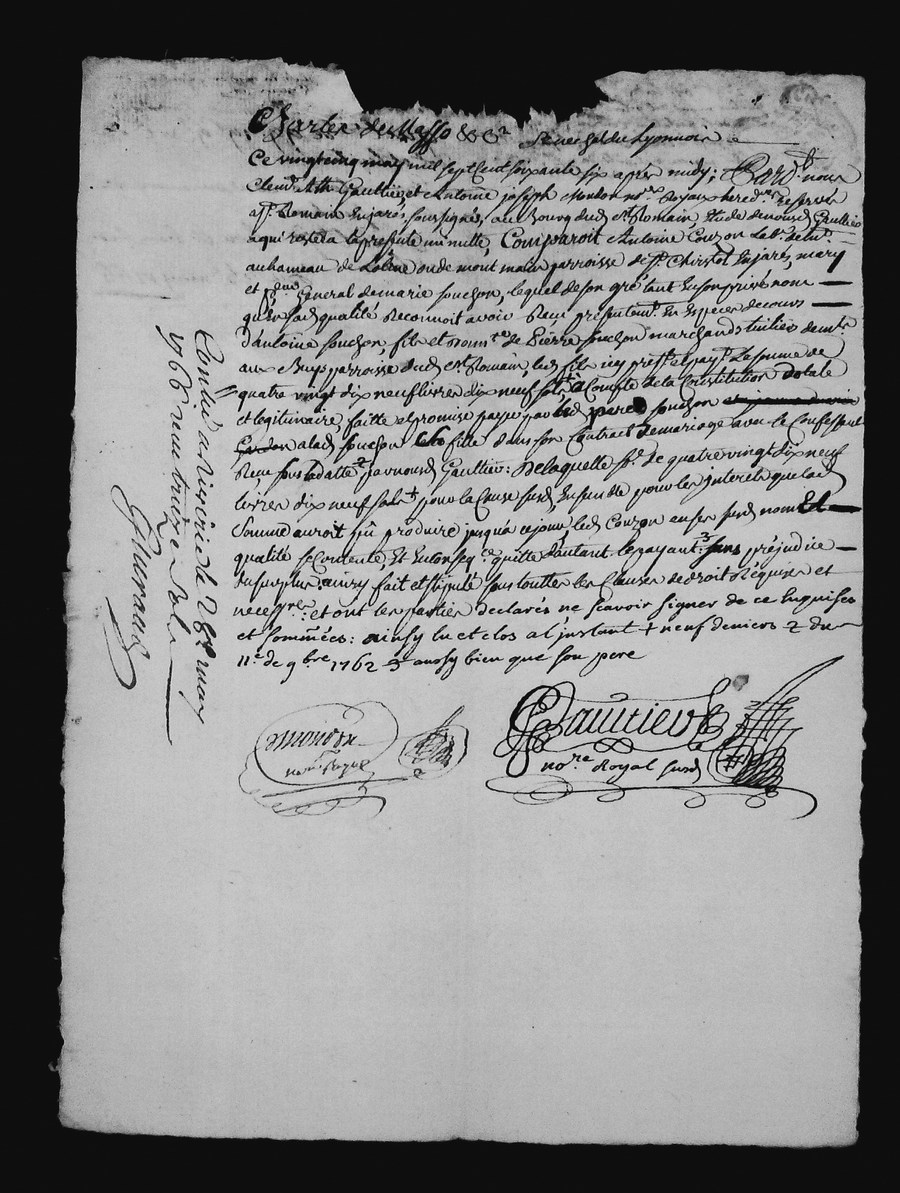 Charles de Masso &c&a Senechal du Lyonnois
Ce vingtcinq may mil sept cent soixante six après midy, Pardt nous
Clemt Ath Gaultier et Antoine joseph mondon nores Royaux hered. res reservés
a St Romain en jarés, soussignés, au bourg dud. st Romain Etude de nousd. Gaultier
a qui restera la presente minutte, Comparoit Antoine Couzon Labr demt
au hameau de ou de mont parroisse de St Christol en jarés, mary
et general de marie souchon, lequel de son gré tant en son privé nom
qu'en sad. qualité Reconnoit avoir Reçu presentemt en Especes de cours
d'antoine souchon, fils et de Pierre souchon marchand tuilier demt
aux parroisse dud. st Romain, led. fils icy prest et payt La somme de
quatre vingt dix neuf livres dix neuf sols + à Compte de la Constitution dotale
et legitimaire, faitte et promise payer par led. pere souchon
a lad. souchon fille dans son Contrat de mariage avec le Confessant
Reçu sous sa datte 2 par nousd. Gaultier: De laquelle se de quatre vingt dix neuf
livres dix neuf sols + pour la Cause susd. Ensemble pour les interets que lad.
Somme auroit pû produire jusqu'a ce jour led. Couzon en ses susd. nom Et
qualité se Contente Et En Conseqce quitte d'autant le payant 3 sans préjudice
du surplus ainsy fait et stipulé sous touttes les Clauses de droit Réquises et
necesres: et ont les parties declarés ne scavoir signer de ce Enquises
et sommées: ainsy lu et clos a l'instant + neuf deniers 2 du
11e de 9bre 1762 3 aussy bien que son pere
mondon
nore Royal
Gaultier
nore Royal susd.
Controllé a Rivedegier le 28e may
1766 reçu treize sols